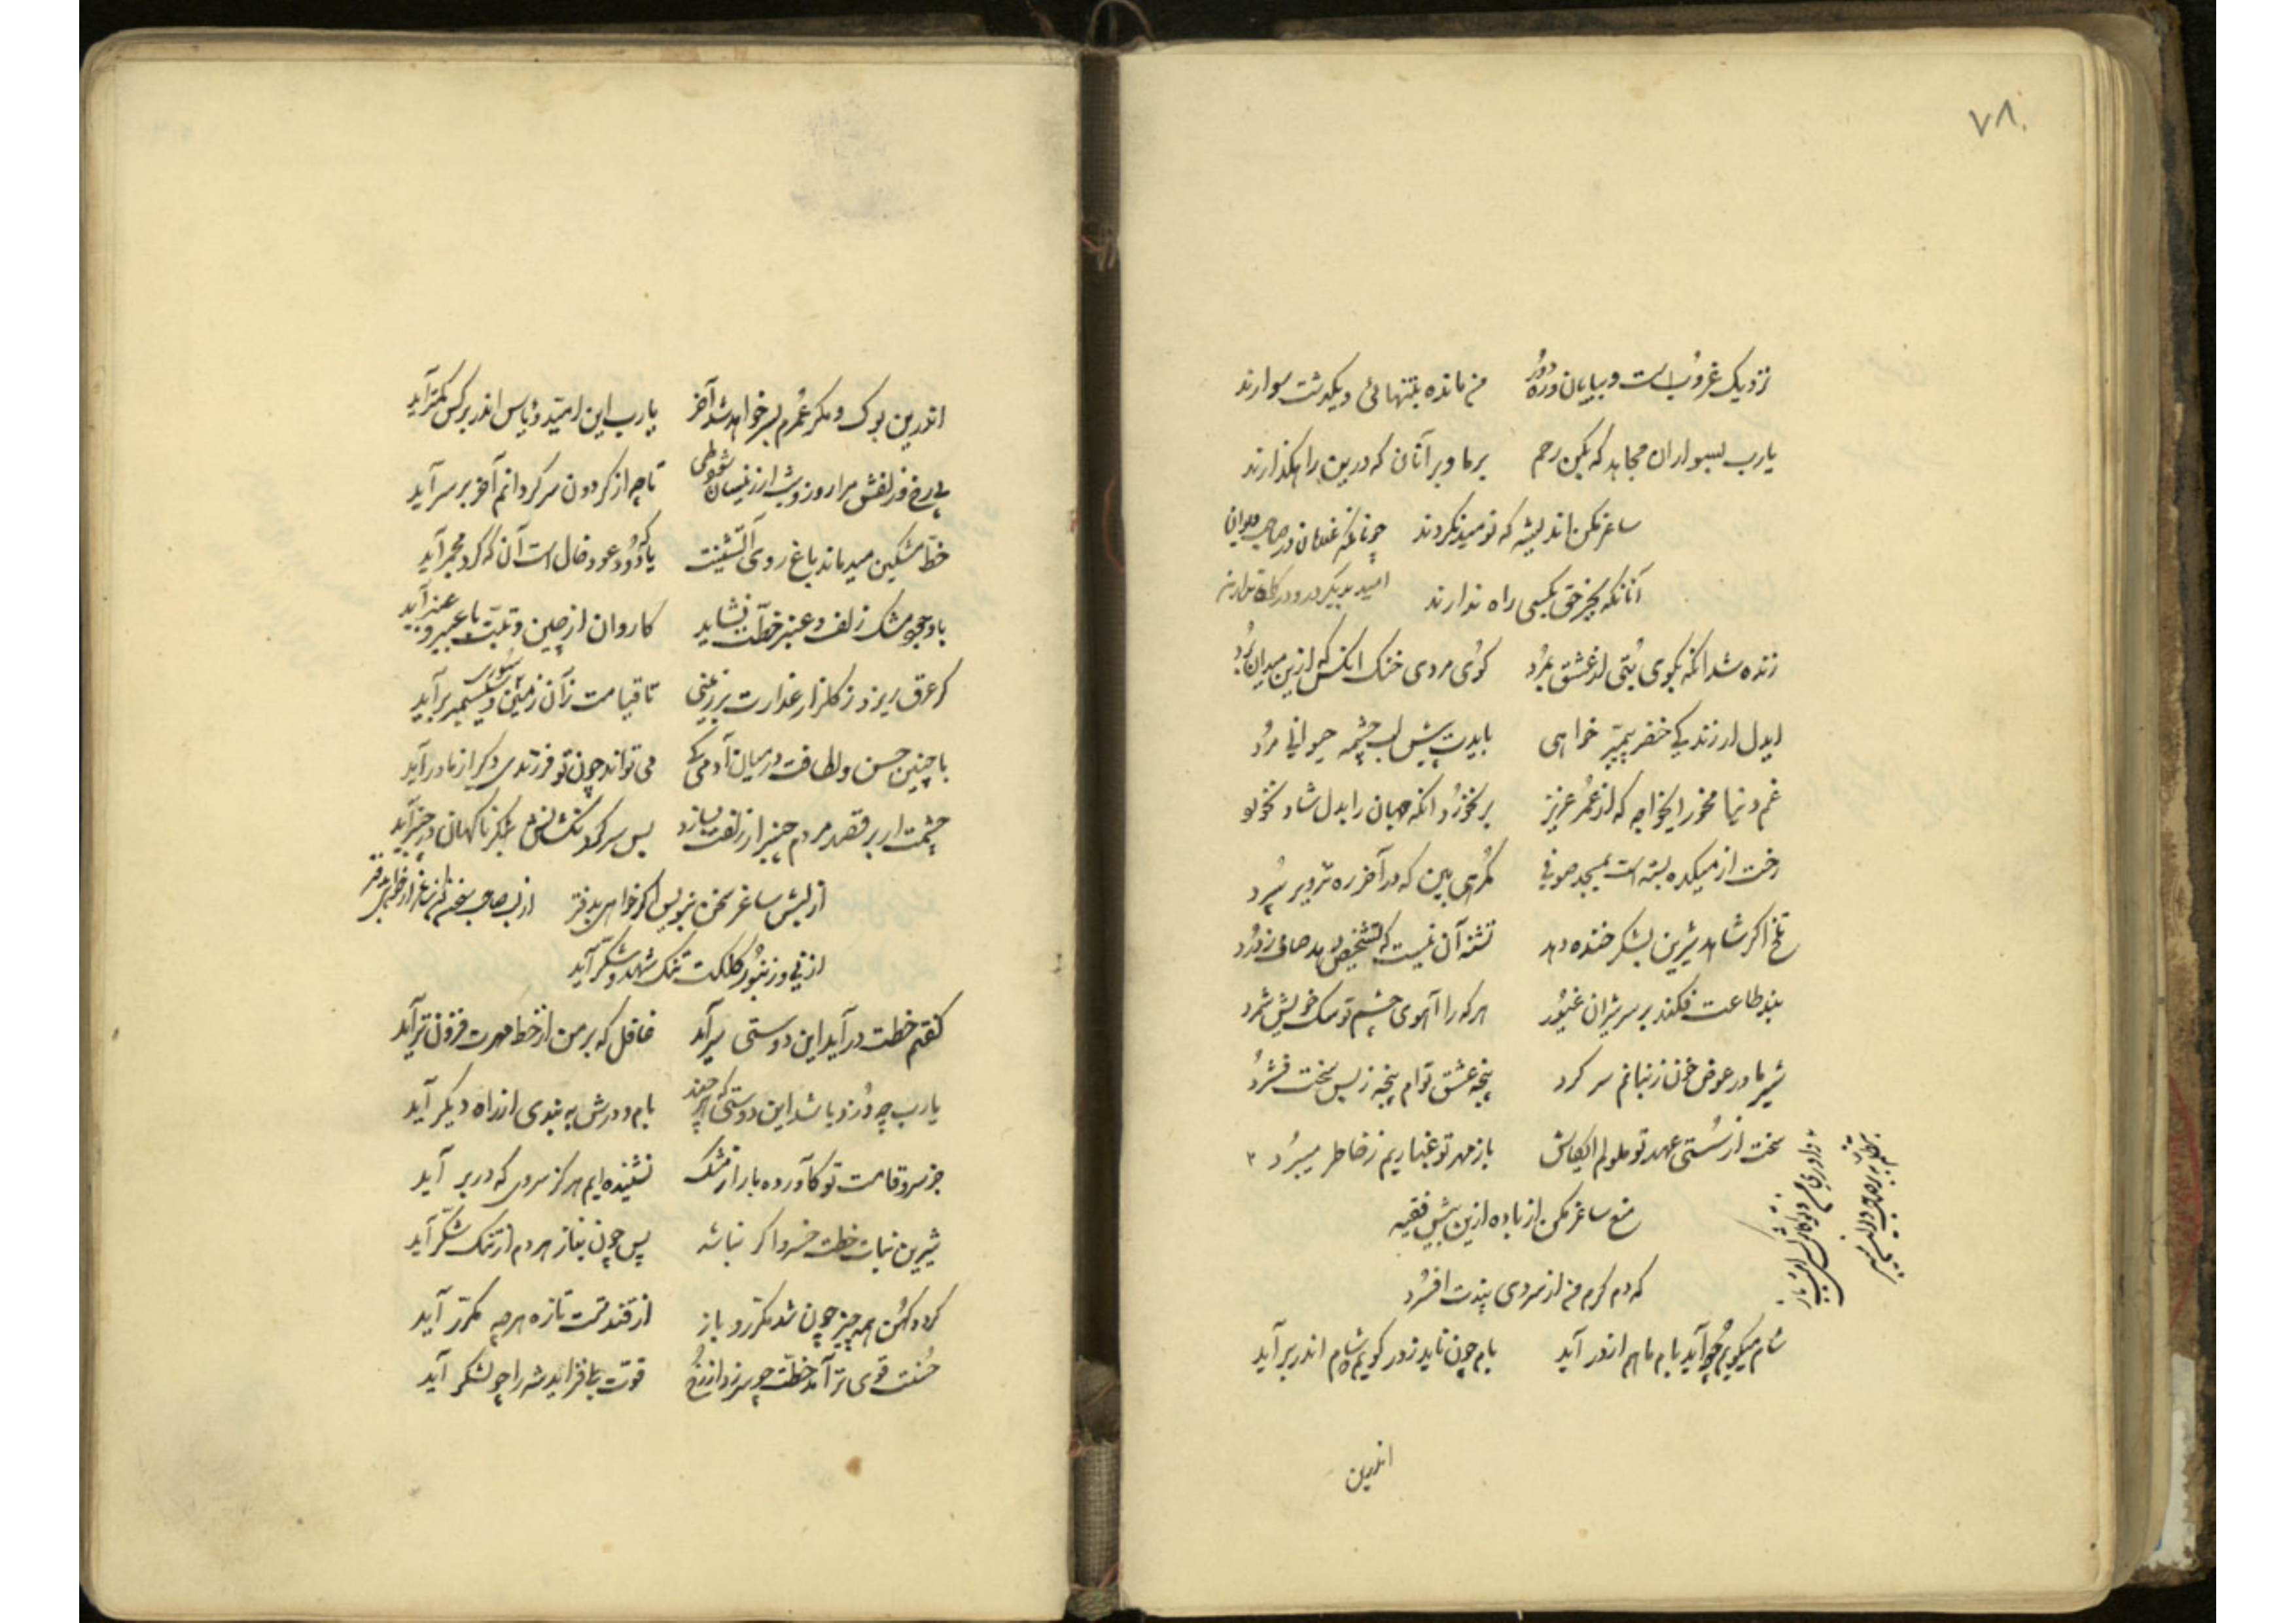 ۷۸
نزدیک غروب است و بیابان و ره دور من مانده بتنهائی و یکدشت سوارند
یارب بسواران مجاهد که بکن رحم بر ما و بر آنان که درین راهگذارند
ساغر مکن اندیشه که نومید نکردند
آنانکه بجز حق بکسی راه ندارند
زنده شد انکه بکوی بُتی از عشق بمُرد کوی مردی خنک انکس که ازین میدان بُرد
ایدل ار زندگی خضر پیمبر خواهی بایدت پیش لب چشمه حیوانی مرد
غم دنیا مخور ایخواجه که از عُمر عزیز بر نخورد انکه جهان را بدل شاد نخورد
رخت از میکده بسته است بمسجد صوفی گمرهی بین که در آخر ره تزویر سپُرد
تلخ اگر شاهد شیرین بشکر خنده دهد تشنه آن نیست که تشخیص دهد صافی ز دُرد
بند طاعت فکند بر سر شیران غیُور هر که را آهوی چشم تو سگ خویش شمرد
شیر مادر عوض خون ز بنانم سر کرد پنجه عشق توام پنجه ز بس سخت فشرُد
سخت از سُستی عهد تو ملولم ایکاش باز مهر تو غبار یم ز خاطر میبرُد
منع ساغر مکن از باده ازین بیش فقیه
که دم گرم من از سردی پندت افسُرد
شام میگویم چو آید بام ماهم از در آید بام چون ناید ز در گویم شام اندر بر آید
اندرین
اندرین بوک و مگر عُمرم بسر خواهد شد آخر یارب این امیّد و یأس اندر بر کس کمتر آید
بی رخ و زلفش مرا روز و شب ار زینسان تا چه از گردون سرگردانم آخر بر سر آید
خطّ مشکین میدماند باغ روی آتشینت یا که دُود عود خال است آن که گرد مجمر آید
با وجود مشک زلف و عنبر خطّت نشاید کاروان از چین و تبّت با عبیر و عنبر آید
گر عرق ریزد ز گلزار عذارت بر زمینی تا قیامت زآن زمین
با چنین حسن و لطافت در میان آدمی کی می تواند چون تو فرزندی دگر از مادر آید
چشمت ار بر قصد مردم چنبر از زلفت بسازد بس سر گردنکشانش ناگهان در چنبر آید
از لبش ساغر سخن بنویس اگر خواهی بدفتر
از نی و زنبُور کلکت تنگ شهد و شکّر آید
گفتم خطت در آید این دوستی سر آید غافل که بر من از خط مهرت فزون تر آید
یارب چه دُزد باشد این دوستی که هر چند بام و درش به بندی از راه دیگر آید
جز سرو قامت تو کآورده بار از مشک نشنیده ایم هرگز سروی که در بر آید
شیرین نبات خطت خسرو اگر نباشد پس چون بناز هر دم از تنگ شکّر آید
گردد کهُن همه چیز چون شد مکرّر و باز از قند تست تازه هر چه مکرّر آید
حُسنت قوی تر آمد خطّت چو سر زد از رُخ قوّت بیفزاید شه را چو لشکر آید